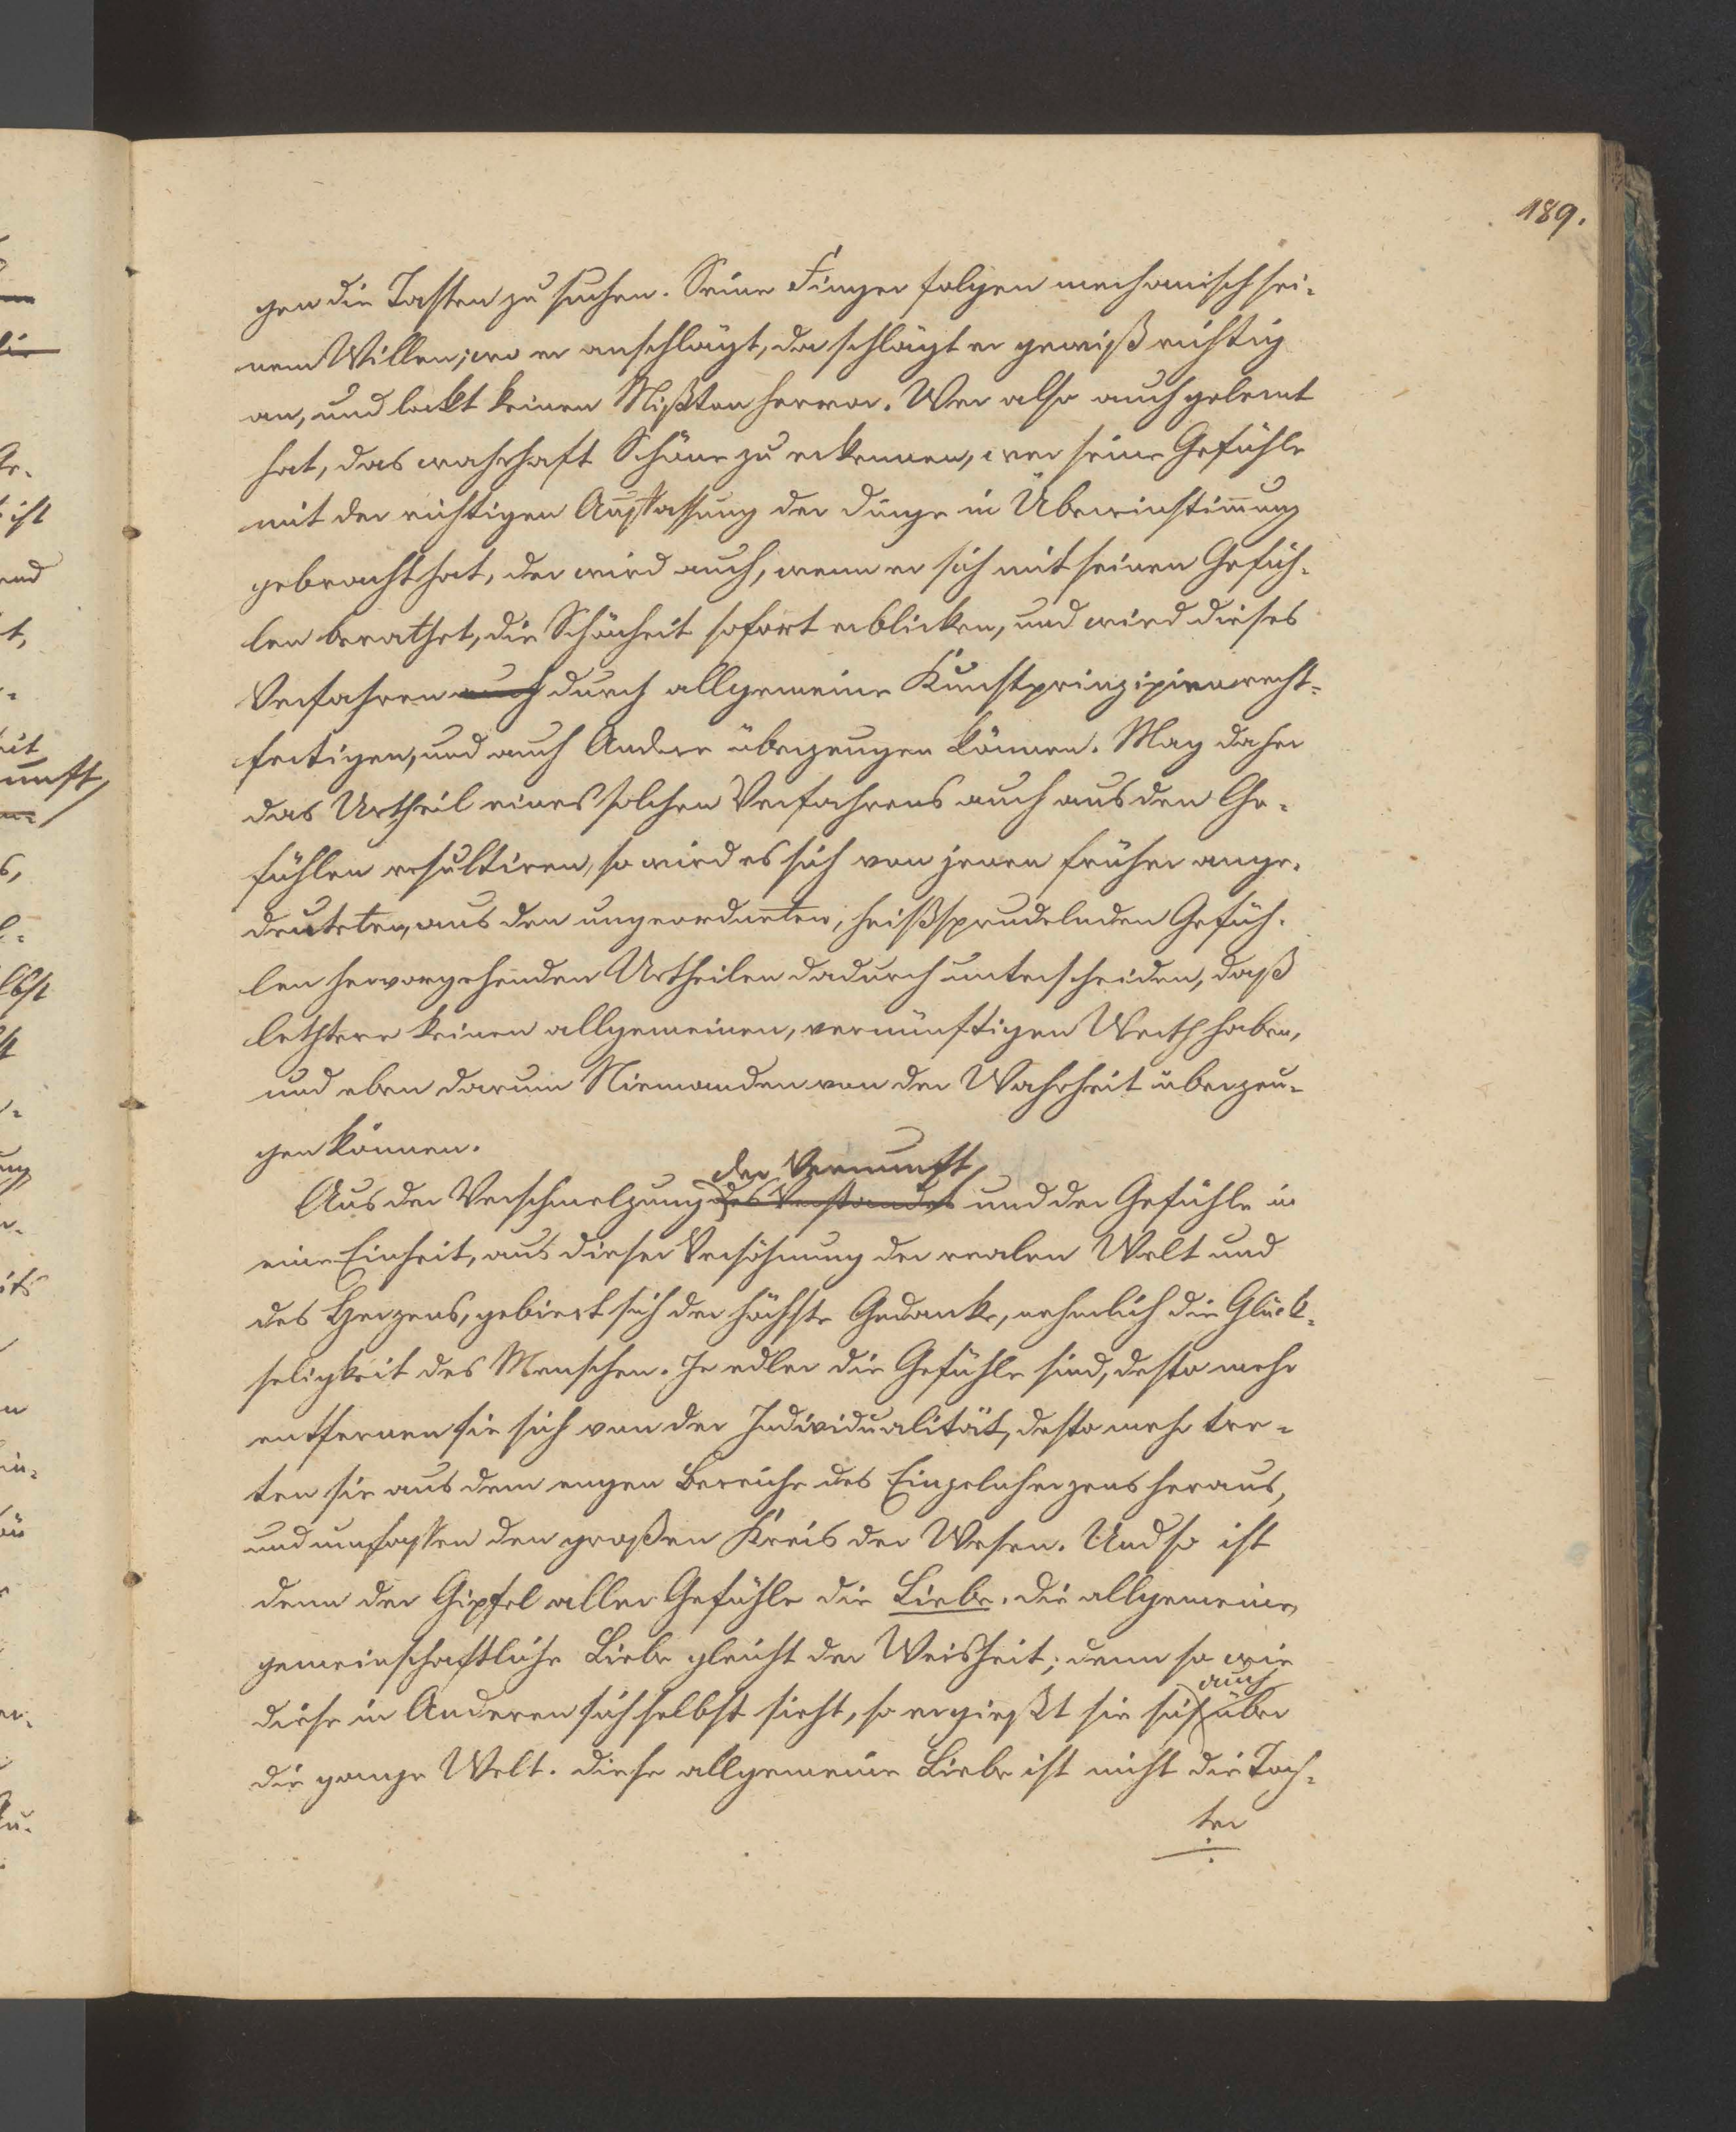 189.
gen die Tasten zu suchen. Seine Finger folgen mechanisch sei-
nem Willen; wo er anschlägt, da schlägt er gewiß richtig
an, und lockt keinen Mißton hervor. Wer also auch gelernt
hat, das wahrhaft Schöne zu erkennen, wer seine Gefühle
mit der richtigen Auffassung der Dinge in Übereinstimmung
gebracht hat, der wird auch, wenn er sich mit seinen Gefüh-
len berathet, die Schönheit sofort erblicken, und wird dieses
Verfahren auch durch allgemeine Kunstprinzipien recht-
fertigen, und auch Andere überzeugen können. Mag daher
das Urtheil eines solchen Verfahrens auch aus den Ge-
fühlen resultiren, so wird es sich von jenen früher ange-
deuteten, aus den ungeordneten, heißsprudelnden Gefüh-
len hervorgehenden Urtheilen dadurch unterscheiden, daß
letztere keinen allgemeinen, vernünftigen Werth haben,
und eben darum Niemanden von der Wahrheit überzeu-
gen können.
der Vernunft
Aus der Verschmelzung des Verstandes und der Gefühle in
eine Einheit, aus dieser Versöhnung der realen Welt und
des Herzens, gebiert sich der höchste Gedanke, nehmlich die Glück-
seligkeit des Menschen. Je edler die Gefühle sind, desto mehr
entfernen sie sich von der Individualität, desto mehr tre-
ten sie aus dem engen Bereiche des Einzelnherzens heraus,
und umfassen den großen Kreis der Wesen. Und so ist
denn der Gipfel aller Gefühle die Liebe. Die allgemeine,
gemeinschaftliche Liebe gleicht der Weisheit; denn so wie
auch
diese in Anderen sich selbst sieht, so ergießt sie sich über
die ganze Welt. Diese allgemeine Liebe ist nicht die Toch-
ter